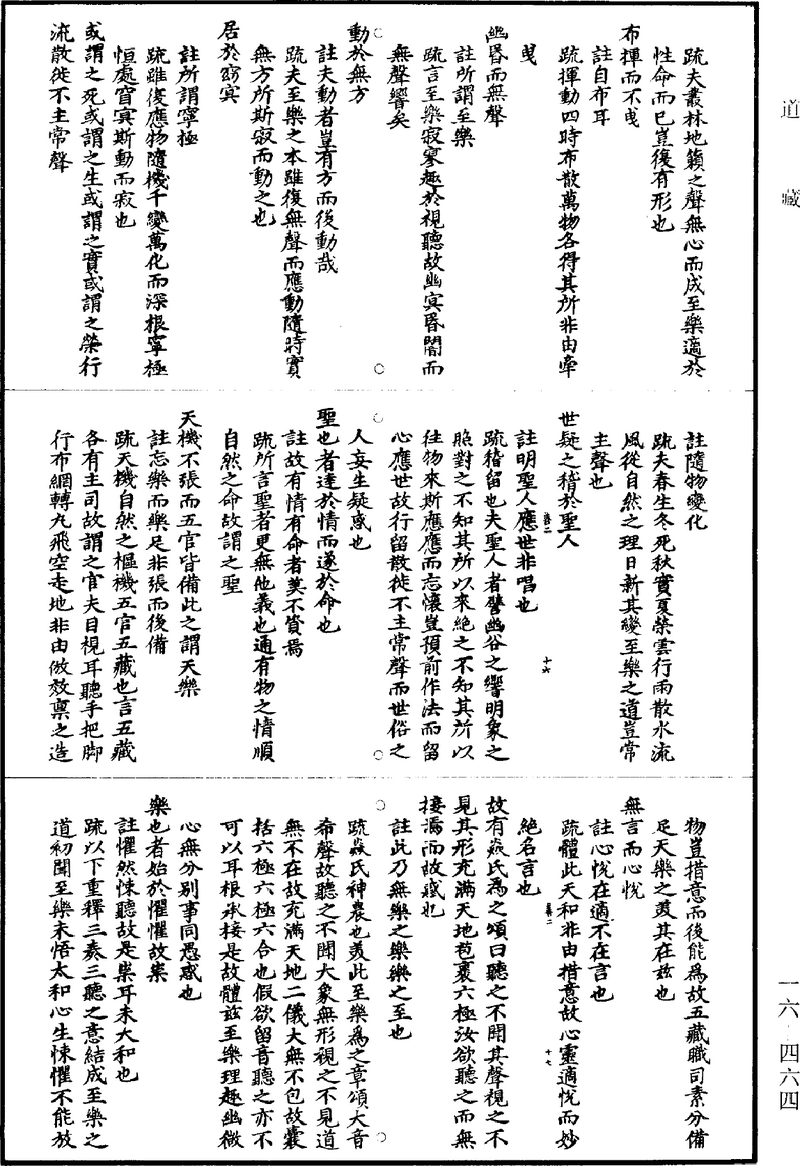 道藏
疏夫叢林地籟之聲無心而成至樂適於
性命而已豈復有形也
布揮而不曳
註自布耳
疏揮動四時布散萬物各得其所非由牽
曳
幽昏而無聲
註所謂至樂
疏言至樂寂寥趣於視聽故幽冥昏闇而
無聲響矣
動於無方
註夫動者豈有方而後動哉
疏夫至樂之本雖復無聲而應動隨時實
無方所斯寂而動之也
居於窈冥
註所謂寧極
疏雖復應物隨機千變萬化而深根寧極
恒處窅冥斯動而寂也
或謂之死或謂之生或謂之實或謂之榮行
流散徙不主常聲
註隨物變化
疏夫春生冬死秋實夏榮雲行雨散水流
風從自然之理日新其變至樂之道豈常
主聲也
世疑之稽於聖人
註明聖人應世非唱也
疏稽留也夫聖人者譬幽谷之響明象之
照對之不知其所以來絶之不知其所以
往物來斯應應而忘懷豈預前作法而留
心應世故行留散徙不主常聲而世俗之
人妄生疑惑也
聖也者達於情而遂於命也
註故有情有命者莫不資焉
疏所言聖者更無他義也通有物之情順
自然之命故謂之聖
天機不張而五官皆備此之謂天樂
註忘樂而樂足非張而後備
疏天機自然之樞機五官五藏也言五藏
各有主司故謂之官夫目視耳聽手把脚
行布網轉丸飛空走地非由倣效稟之造
十六
物豈措意而後能為故五藏職司素分備
足天樂之美其在茲也
無言而心悅
註心悅在適不在言也
疏體此天和非由措意故心靈適悅而妙
絶名言也
故有焱氏為之頌曰聽之不聞其聲視之不
見其形充滿天地苞裹六極汝欲聽之而無
接焉而故惑也
註此乃無樂之樂樂之至也
疏焱氏神農也美此至樂為之章頌大音
希聲故聽之不聞大象無形視之不見道
無不在故充滿天地二儀大無不包故囊
括六極六極六合也假欲留音聽之亦不
可以耳根承接是故體茲至樂理趣幽微
心無分別事同愚惑也
樂也者始於懼懼故祟
註懼然悚聽故是祟耳未大和也
疏以下重釋三奏三聽之意結成至樂之
道初聞至樂未悟太和心生悚懼不能放
十七
一六-四六四